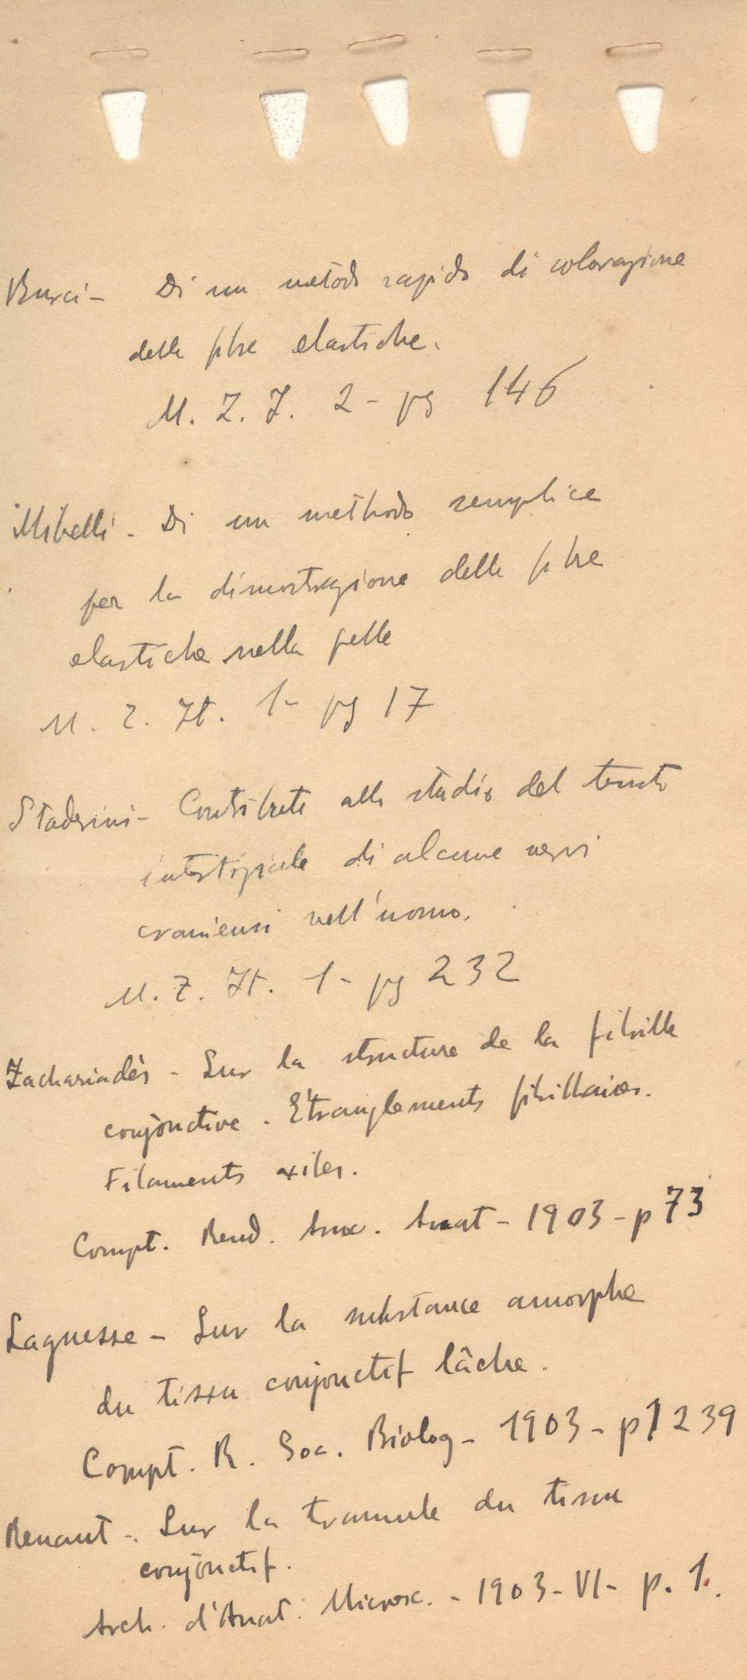 Burci - Di un metodo rapido di colorazione
delle fibre elastiche.
M. Z. I. 2 - pg 146
Mibelli - Di un methodo semplice
per la dimostrazione delle fibre
elastiche nella pelle
M. Z. It. 1 - pg 17
Staderini - Contributo allo studio del tessuto
interstiziale di alcune nervi
craniensi nell'uomo.
M. Z. It. 1 - pg 232
Zachariadès - Sur la structure de la fibrille
conjonctive. Etranglements fibrillaires.
Filaments axiles.
Compt. Rend. Anat - 1903 - p 73
Laguesse - Sur la substance amorphe
du tissu conjonctif lâche.
Compt. R. Soc. Biolog - 1903 - p 1239
Renaut - Sur la tramule du tissu
conjonctif.
Arch. d'Anat. Microsc. - 1903 - VI - p. 1.